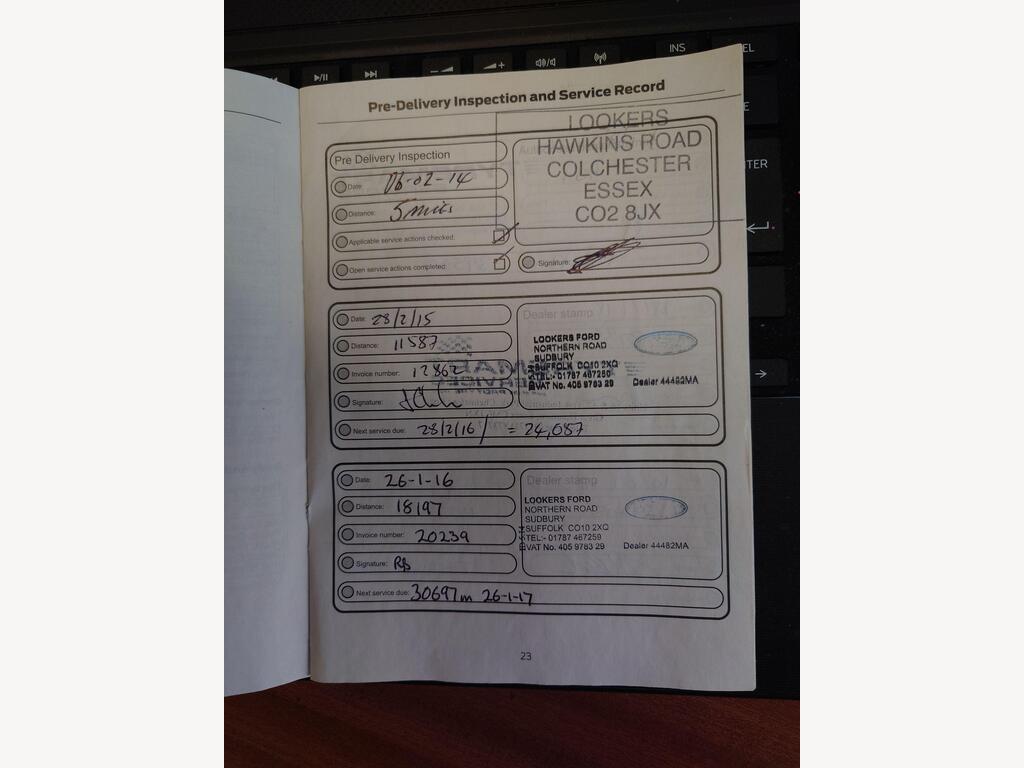 INS
Pre-Delivery Inspection and Service Record
Pre Delivery Inspection
Date: 06-02-14
Distance: 5 miles
Applicable service actions checked:
Open service actions completed:
LOOKERS
HAWKINS ROAD
COLCHESTER
ESSEX
CO2 8JX
Signature:
Date: 28/2/15
Distance: 11587
Invoice number: 12862
Signature:
Next service due: 28/2/16 / = 24,087
Dealer stamp
LOOKERS FORD
NORTHERN ROAD
SUDBURY
SUFFOLK CO10 2XQ
TEL:- 01787 467259
VAT No. 405 9783 29
Dealer 44482MA
Date: 26-1-16
Distance: 18197
Invoice number: 20239
Signature:
Next service due: 30697m 26-1-17
Dealer stamp
LOOKERS FORD
NORTHERN ROAD
SUDBURY
SUFFOLK CO10 2XQ
TEL:- 01787 467259
VAT No. 405 9783 29
Dealer 44482MA
23